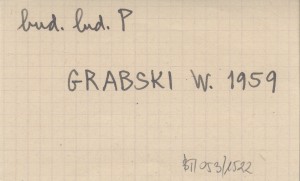 bud. lud. P
GRABSKI W. 1959
BT/053/1522